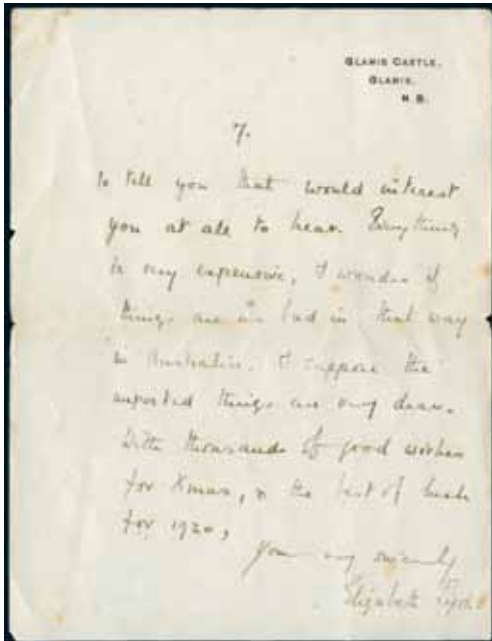 GLAMIS CASTLE,
GLAMIS.
N.B.
7.
to tell you that would interest
you at all to hear. Everything
is very expensive, I wonder if
things are as bad in that way
in Australia. I suppose the
imported things are very dear.
With thousands of good wishes
for Xmas, & the best of luck
for 1920,
Your very sincerely
Elizabeth Lyon